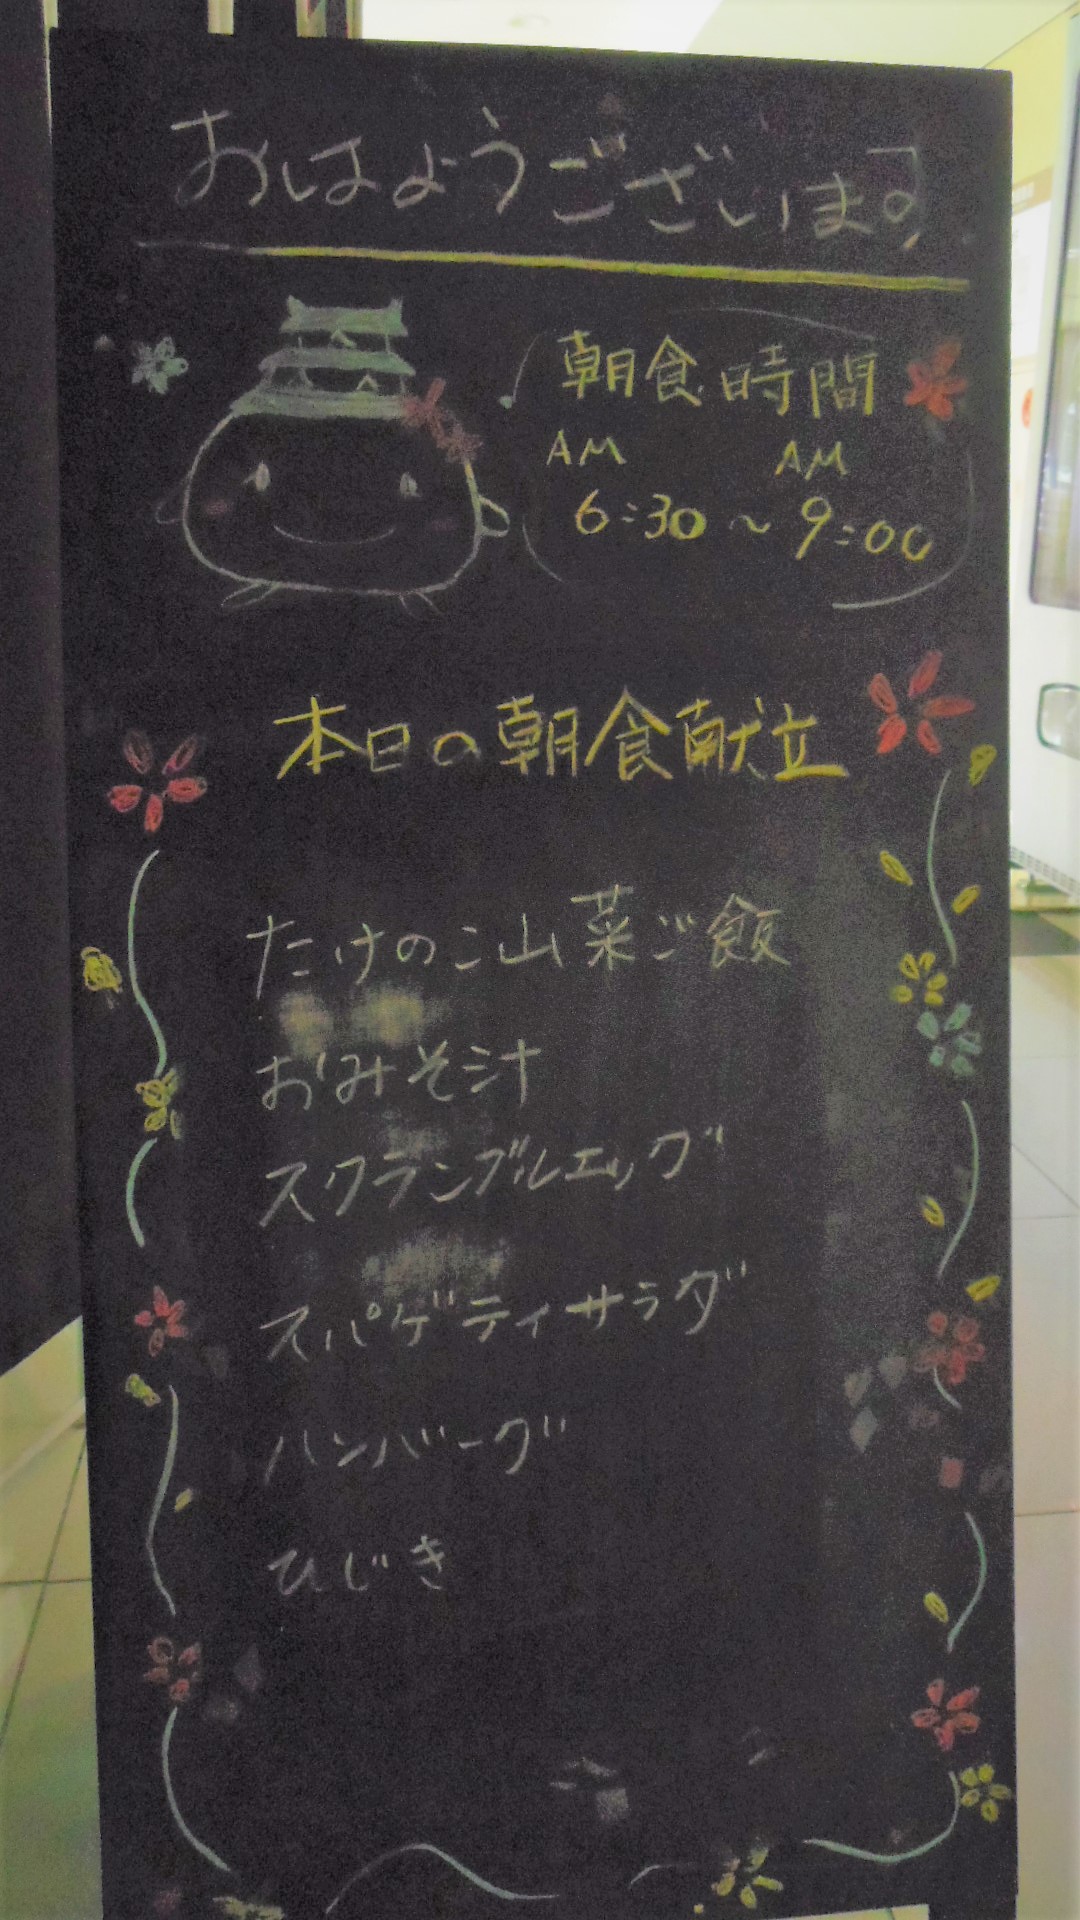 おはようございます
朝食時間
AM AM
6:30～9:00
本日の朝食献立
たけのこ山菜ご飯
おみそ汁
スクランブルエッグ
スパゲティサラダ
ハンバーグ
ひじき